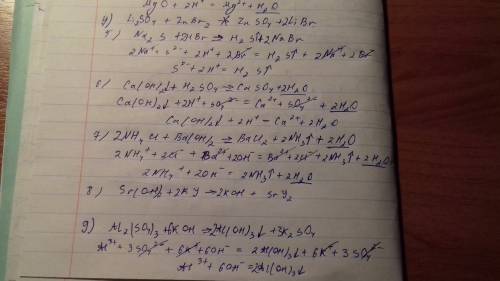 MgO + 2H⁺ = Mg²⁺ + H₂O
4) Li₂SO₄ + ZnBr₂ ZnSO₄ + 2LiBr
5) Na₂S + 2HBr → H₂S↑ + 2NaBr
2Na⁺ + S²⁻ + 2H⁺ + 2Br⁻ = H₂S↑ + 2Na⁺ + 2Br⁻
S²⁻ + 2H⁺ = H₂S↑
6) Ca(OH)₂↓ + H₂SO₄ → CaSO₄ + 2H₂O
Ca(OH)₂↓ + 2H⁺ + SO₄²⁻ = Ca²⁺ + SO₄²⁻ + 2H₂O
Ca(OH)₂↓ + 2H⁺ = Ca²⁺ + 2H₂O
7) 2NH₄Cl + Ba(OH)₂ → BaCl₂ + 2NH₃↑ + 2H₂O
2NH₄⁺ + 2Cl⁻ + Ba²⁺ + 2OH⁻ = Ba²⁺ + 2Cl⁻ + 2NH₃↑ + 2H₂O
2NH₄⁺ + 2OH⁻ = 2NH₃↑ + 2H₂O
8) Sr(OH)₂ + 2KY → 2KOH + SrY₂
9) Al₂(SO₄)₃ + 6KOH → 2Al(OH)₃↓ + 3K₂SO₄
Al³⁺ + 3SO₄²⁻ + 6K⁺ + 6OH⁻ = 2Al(OH)₃↓ + 6K⁺ + 3SO₄²⁻
Al³⁺ + 6OH⁻ = 2Al(OH)₃↓